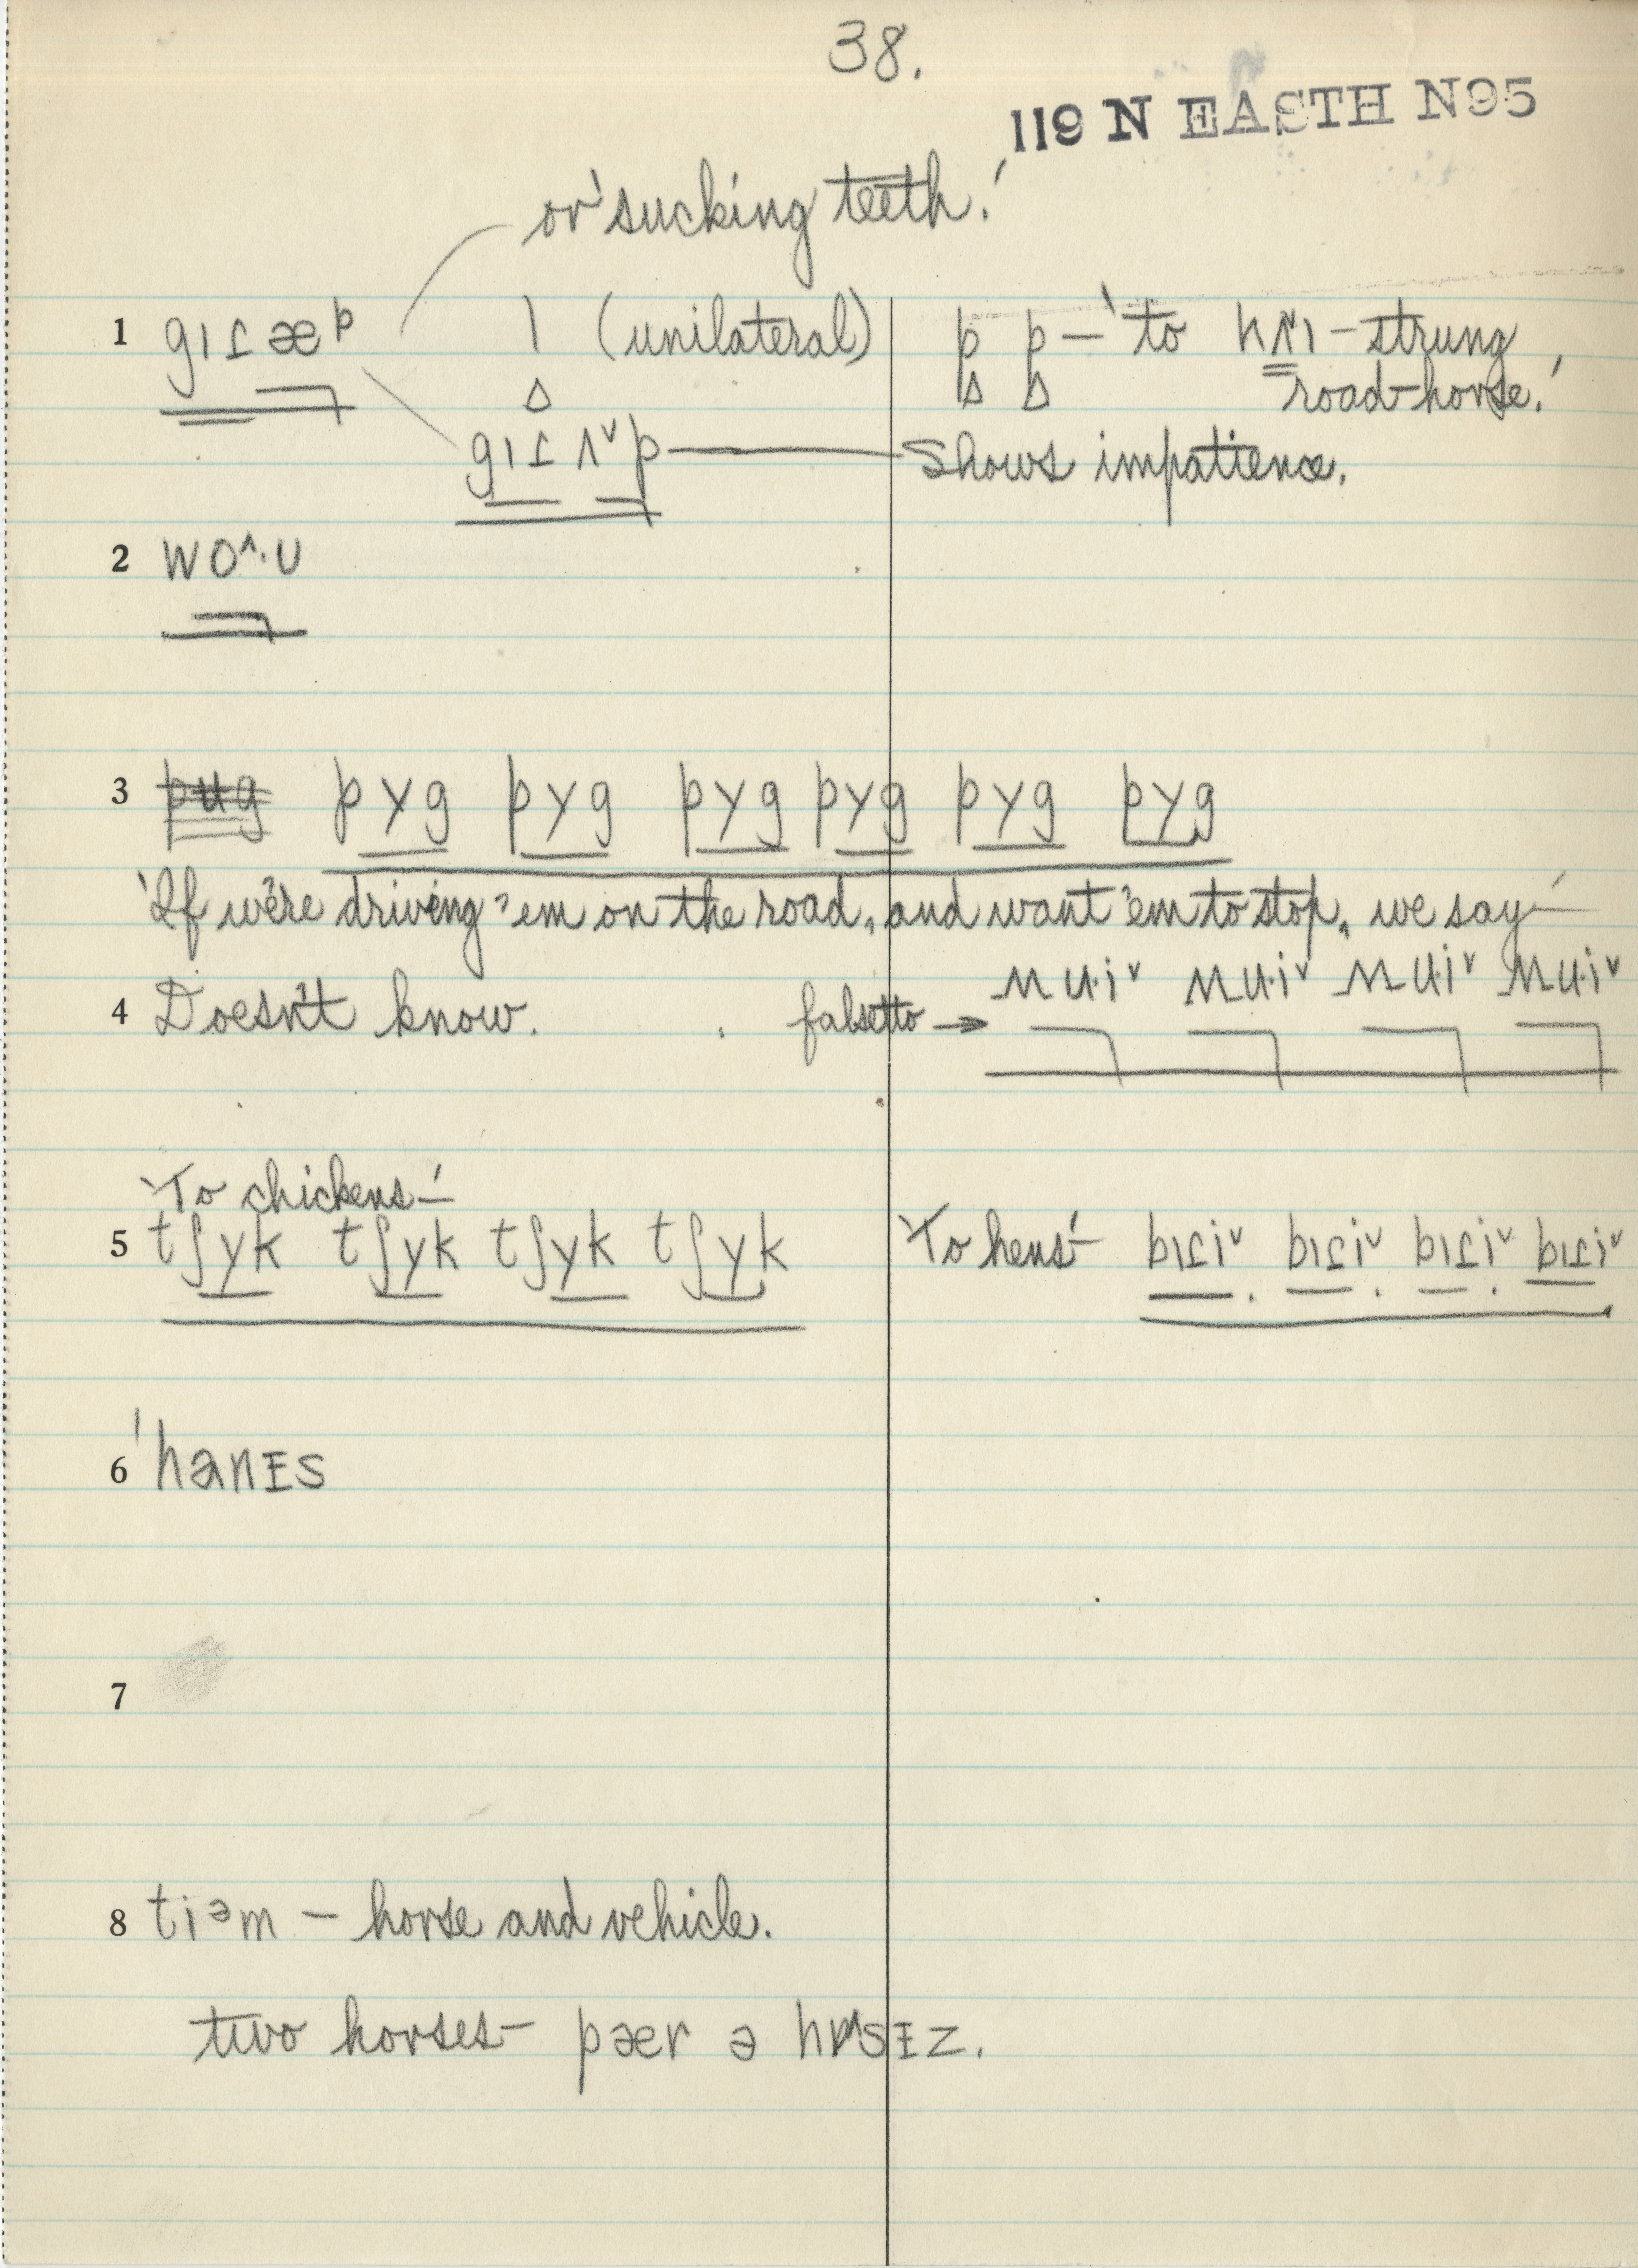 38.
119 N EASTH N95
or 'sucking teeth.'
1 gıɾæᵖ l (unilateral) p p — 'to
road-horse.'
gıɾʌ˅p — Shows impatience.
2 wo^·ᴜ
3 pyg pyg pyg pyg pyg pyg
'If we're driving 'em on the road, and want 'em to stop, we say—'
4 Doesn't know. falsetto → mu·i˅ mu·i˅ mu·i˅ mu·i˅
'To chickens—'
5 tʃyk tʃyk tʃyk tʃyk 'To hens'— bıɾi˅ bıɾi˅ bıɾi˅ bıɾi˅
6 'hanɪs
7
8 tiᵊm — horse and vehicle.
two horses — pær ə hɒsɪz.